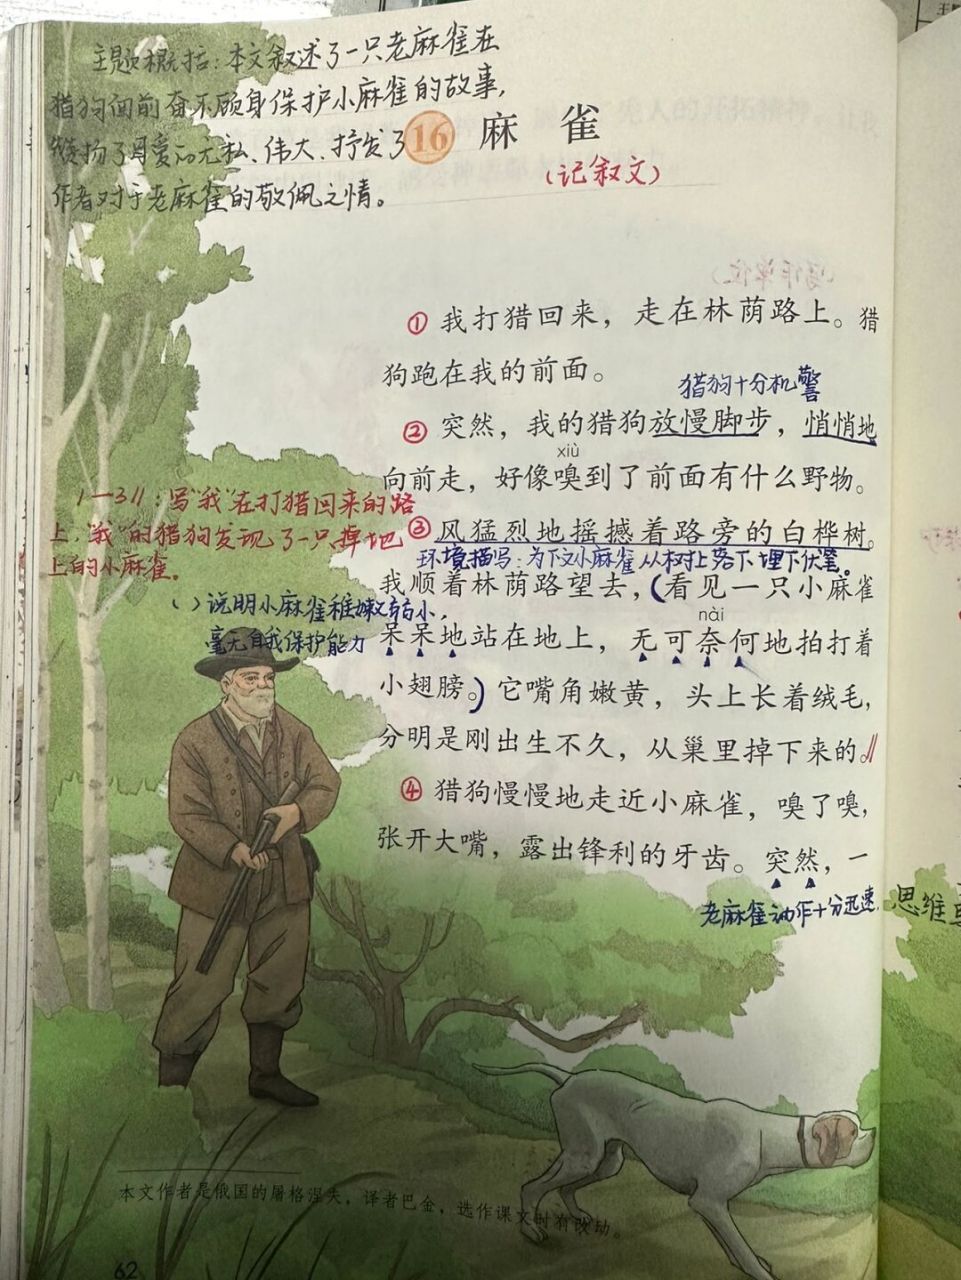 主题概括：本文叙述了一只老麻雀在
猎狗面前奋不顾身保护小麻雀的故事，
赞扬了母爱的无私、伟大，抒发了
作者对于老麻雀的敬佩之情。
16 麻雀
（记叙文）
① 我打猎回来，走在林荫路上。猎
狗跑在我的前面。
猎狗十分机警
② 突然，我的猎狗放慢脚步，悄悄地
xiù
向前走，好像嗅到了前面有什么野物。
1—3//：写“我”在打猎回来的路
上，“我”的猎狗发现了一只掉地
上的小麻雀。
③ 风猛烈地摇撼着路旁的白桦树。
环境描写：为下文小麻雀从树上落下埋下伏笔。
我顺着林荫路望去，（看见一只小麻雀
（ ）说明小麻雀稚嫩弱小，
毫无自我保护能力
nài
呆呆地站在地上，无可奈何地拍打着
小翅膀。）它嘴角嫩黄，头上长着绒毛，
分明是刚出生不久，从巢里掉下来的。//
④ 猎狗慢慢地走近小麻雀，嗅了嗅，
张开大嘴，露出锋利的牙齿。突然，一
老麻雀动作十分迅速
思维
本文作者是俄国的屠格涅夫，译者巴金，选作课文时有改动。
62